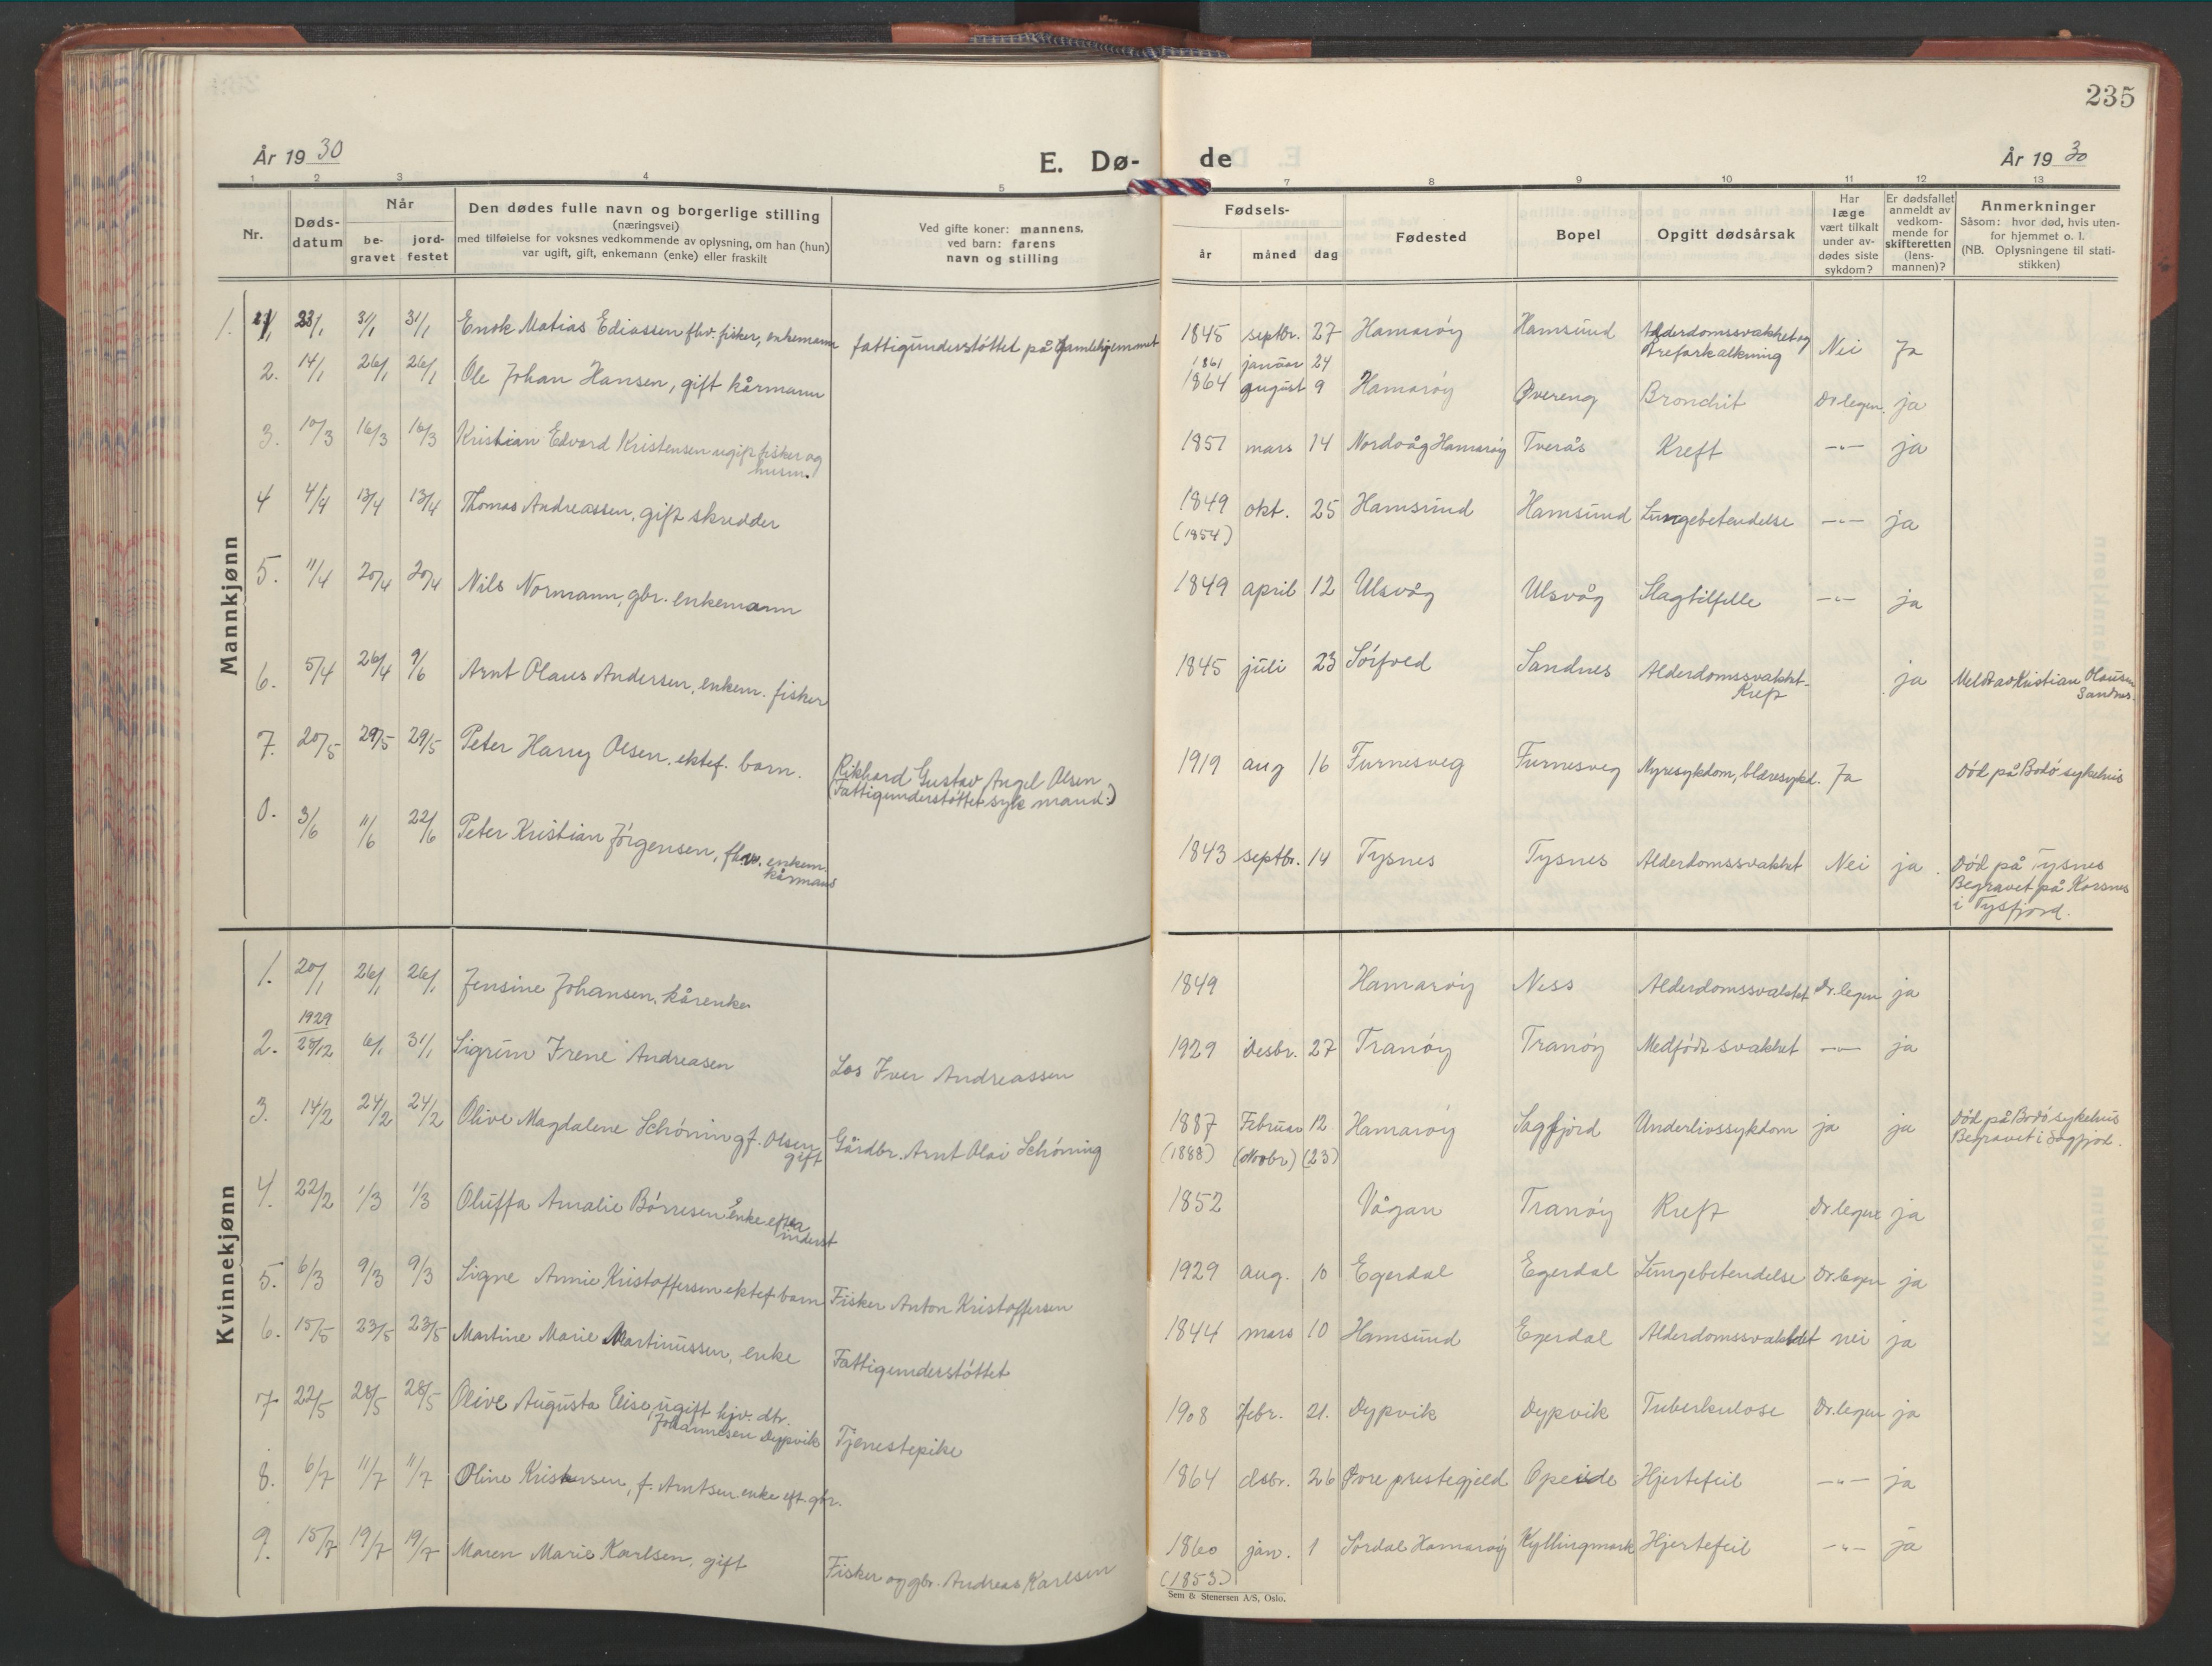 235
År 1930
E. Dø-de
År 1930
1 2 3 4 5 7 8 9 10 11 12 13
Nr.
Døds-
datum
Når
be-
gravet
jord-
festet
Den dødes fulle navn og borgerlige stilling
(næringsvei)
med tilføielse for voksnes vedkommende av oplysning, om han (hun)
var ugift, gift, enkemann (enke) eller fraskilt
Ved gifte koner: mannens,
ved barn: farens
navn og stilling
Fødsels-
år måned dag
Fødested
Bopel
Opgitt dødsårsak
Har
læge
vært tilkalt
under av-
dødes siste
sykdom?
Er dødsfallet
anmeldt av
vedkom-
mende for
skifteretten
(lens-
mannen)?
Anmerkninger
Såsom: hvor død, hvis uten-
for hjemmet o. l.
(NB. Oplysningene til stati-
stikken)
Mannkjønn
1. 23/1 31/1 31/1 Enok Matias Ediassen fhv. fisker, enkemann fattigunderstøttet på Gamlehjemmet 1845 septbr. 27 Hamarøy Hamsund Alderdomssvakhet og
Åreforkalkning Nei Ja
1861 januar 24
2. 14/1 26/1 26/1 Ole Johan Hansen, gift kårmann 1864 august 9 Hamarøy Øvereng Bronchit Dr legen. ja
3. 10/3 16/3 16/3 Kristian Edvard Kristensen ugift fisker og
husm. 1851 mars 14 Nordvåg Hamarøy Tverås Kreft -"- ja
4 4/4 13/4 13/4 Thomas Andreassen, gift skredder 1849 okt. 25 Hamsund Hamsund Lungebetendelse -"- ja
(1854)
5. 11/4 20/4 20/4 Nils Normann, gbr. enkemann 1849 april 12 Ulsvåg Ulsvåg Slagtilfelle -"- ja
6. 5/4 26/4 9/6 Arnt Olaus Andersen, enkem. fisker 1845 juli 23 Sørfold Sandnes Alderdomssvakhet-
Kreft ja Meldt av Kristian Olausen
Sandnes.
7. 20/5 29/5 29/5 Peter Harry Olsen, ektef. barn. Rikhard Gustav Angel Olsen
(Fattigunderstøttet syk mand.) 1919 aug 16 Furnesveg Furnesveg Nyresykdom, blæresykd. Ja Død på Bodø sykehus
3/6 11/6 22/6 Peter Kristian Jørgensen, fhv. enkem.
kårmand 1843 septbr. 14 Tysnes Tysnes Alderdomssvakhet Nei ja. Død på Tysnes
Begravet på Korsnes
i Tysfjord.
Kvinnekjønn
1. 20/1 26/1 26/1 Jensine Johansen, kårenke 1849 Hamarøy Ness Alderdomssvakhet Dr. legen ja
1929
2. 28/12 6/1 31/1 Sigrun Irene Andreasen Los Iver Andreassen 1929 desbr. 27 Tranøy Tranøy Medfødt svakhet -"- ja
3. 14/2 24/2 24/2 Olive Magdalene Schøning f. Olsen
gift Gårdbr. Arnt Olai Schøning 1887 Februar 12 Hamarøy Sagfjord Underlivssykdom ja ja Død på Bodø sykehus
Begravet i Sagfjord.
(1888) (Novbr) (23)
4. 22/2 1/3 1/3 Oluffa Amalie Børresen enke efter
inderst 1852 Vågan Tranøy Kreft Dr legen ja
5. 6/3 9/3 9/3 Signe Annie Kristoffersen ektef. barn Fisker Anton Kristoffersen 1929 aug. 10 Egerdal Egerdal Lungebetendelse Dr. legen ja
6. 15/5 23/5 23/5 Martine Marie Martinussen, enke Fattigunderstøttet 1844 mars 10 Hamsund Egerdal Alderdomssvakhet nei ja
7 22/5 28/5 28/5 Olive Augusta Elise, ugift hjv. dtr.
Johannesen Dypvik Tjenestepike 1908 febr. 21. Dypvik Dypvik Tuberkulose Dr. legen ja
8. 6/7 11/7 11/7 Oline Kristensen, f. Arntsen enke eft. gbr. 1864 dsbr. 26 Øvre prestegjeld Opeide Hjertefeil -"- ja
9. 15/7 19/7 19/7 Maren Marie Karlsen, gift Fisker og gbr. Andreas Karlsen 1860 jan. 1 Sørdal Hamarøy Kyllingmark Hjertefeil -"- ja
(1853)
Sem & Stenersen A/S, Oslo.